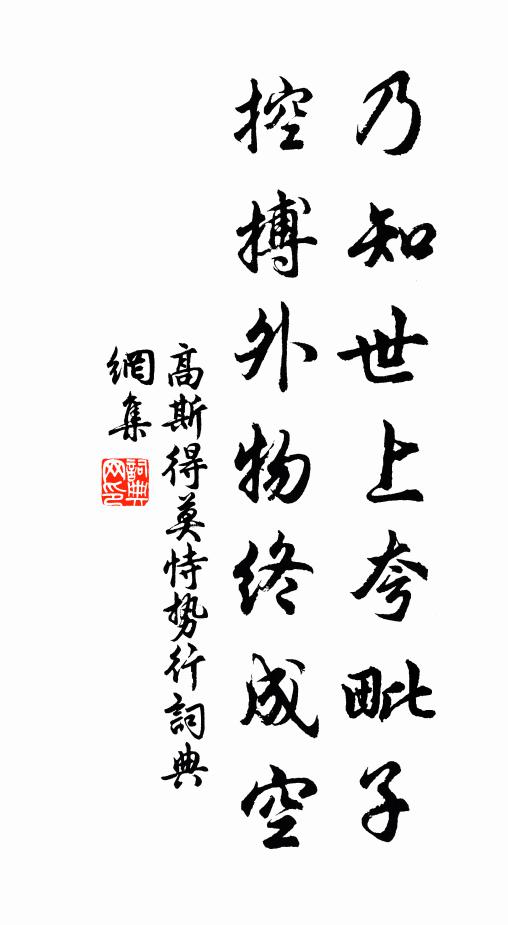 乃知世上夸毗子
控搏外物终成空
高斯得莫恃势行词典
網集
詞典
网印